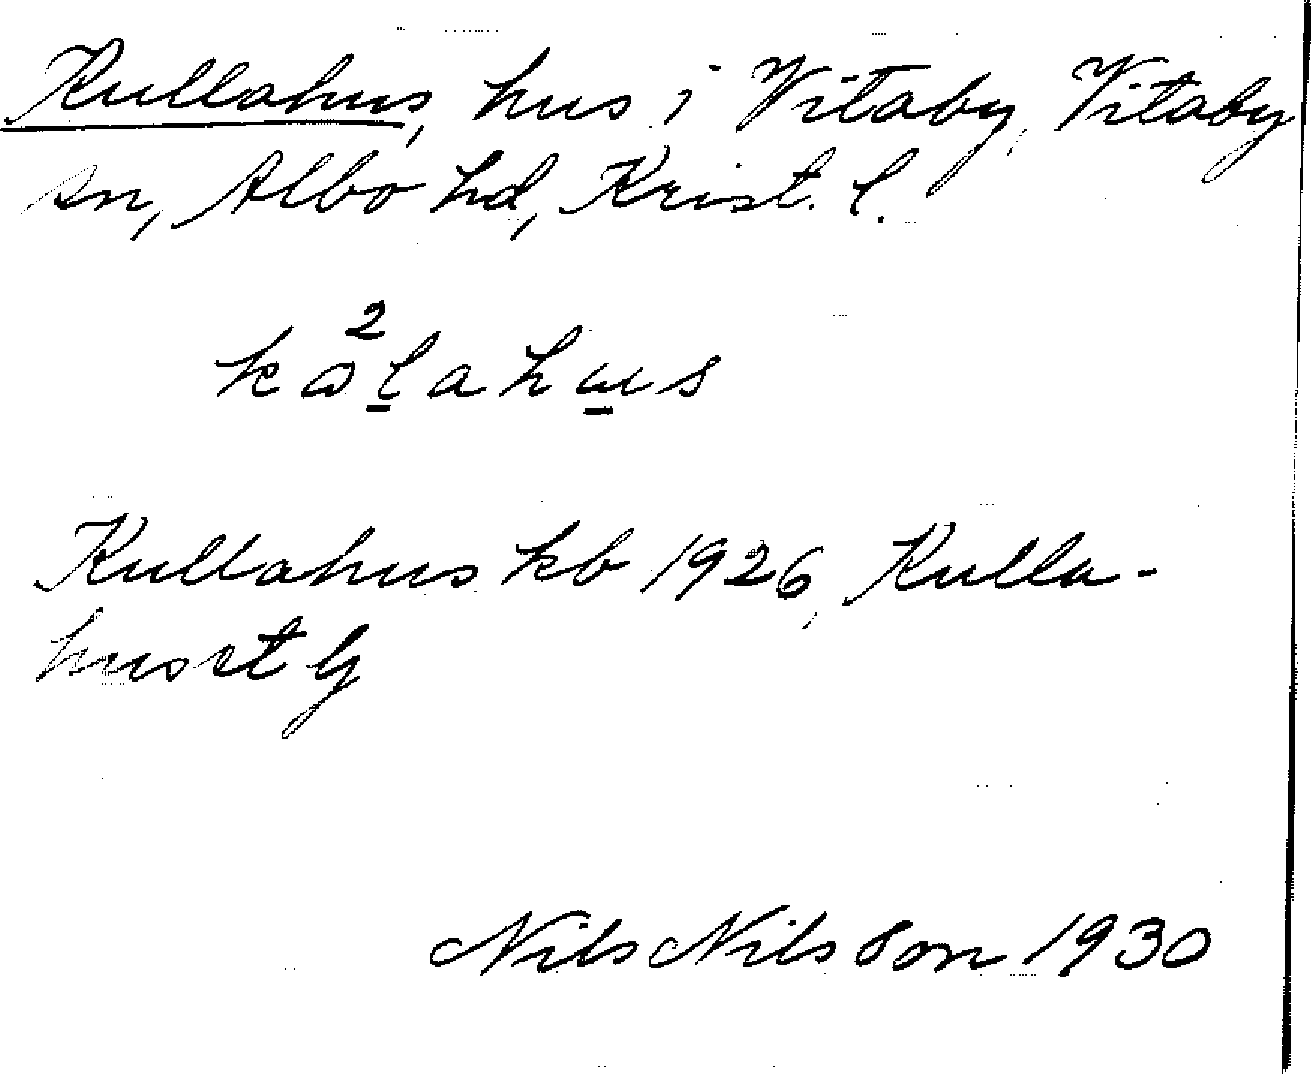 Kullahus, hus i Vitaby, Vitaby
sn, Albo hd, Krist. l.
Kullahus kb 1926, Kulla-
huset G
Nils Nilsson 1930